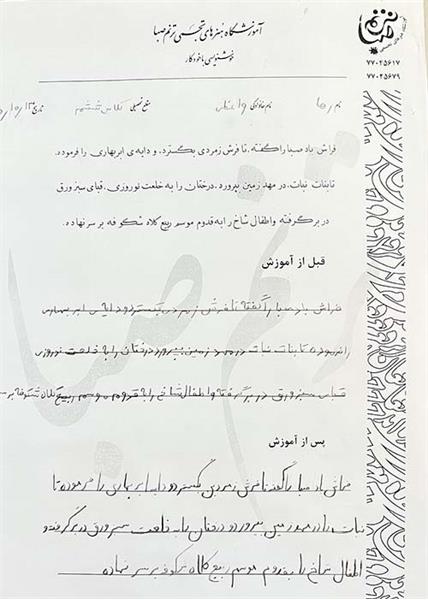 آموزشگاه هنرهای تجسمی ترنم صبا
خوشنویسی با خودکار
ترنم صبا
۷۷۰۲۵۶۱۷
۷۷۰۲۵۶۷۹
نام رضا نام خانوادگی واعظ سطح تحصیلی کلاس ششم تاریخ
فراش باد صبا را گفته، تا فرش زمردی بگسترد، و دایه‌ی ابر بهاری را فرموده،
تا بنات نبات، در مهد زمین بپرورد، درختان را به خلعت نوروزی، قبای سبز ورق
در بر گرفته و اطفال شاخ را به قدوم موسم ربیع کلاه شکوفه بر سر نهاده.
قبل از آموزش
فراش باد صبا را گفته تا فرش زمردی بگسترد و دایه ابر بهاری
را فرموده تا بنات نبات در مهد زمین بپرورد درختان را به خلعت نوروزی
قبای سبز ورق در بر گرفته و اطفال شاخ را به قدوم موسم ربیع کلاه شکوفه بر
پس از آموزش
فراش باد صبا را گفته تا فرش زمردین بگسترد و دایه ابر بهاری را فرموده تا
نبات را در مهد زمین بپرورد درختان را به خلعت سبز ورق در بر گرفته و
اطفال شاخ را به قدوم موسم ربیع کلاه شکوفه بر سر نهاده